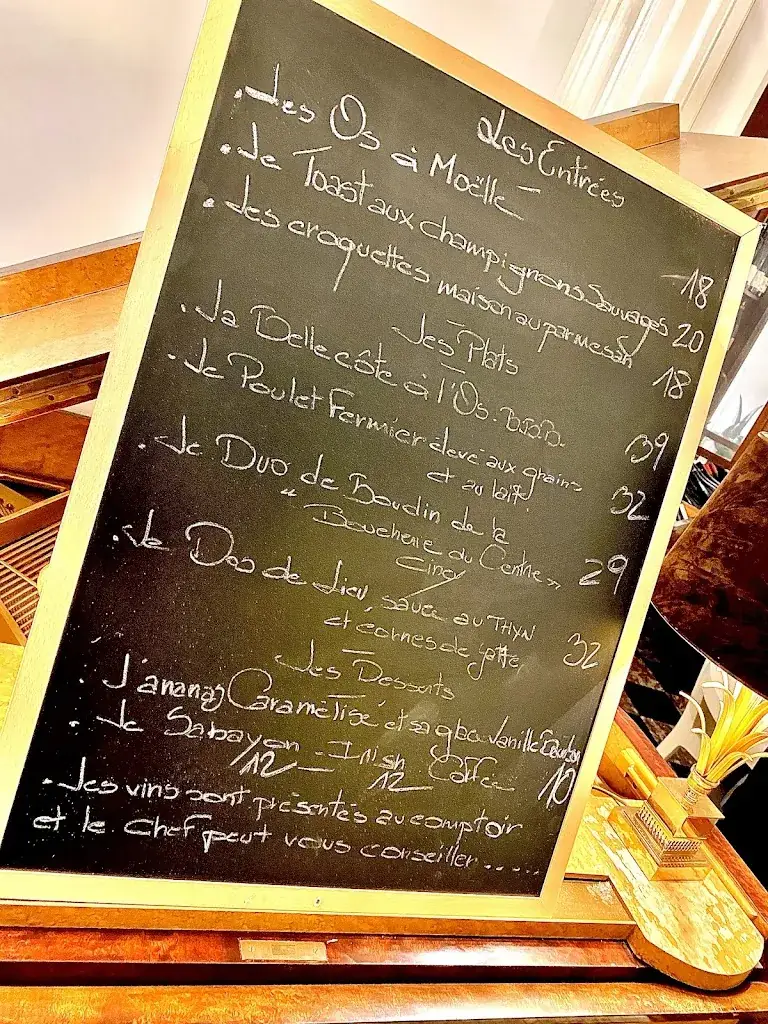 Les Entrées
. Les Os à Moëlle 18
. Le Toast aux champignons Sauvages 20
. Les croquettes maison au parmesan 18
Les Plats
. La Belle côte à l'Os. B.B.B. 39
. Le Poulet Fermier élevé aux grains
et au lait. 32
. Le Duo de Boudin de la
"Boucherie du Centre" 29
Ciney
. Le Dos de Lieu, sauce au THYN
et cornes de gatte 32
Les Desserts
. L'ananas Caramélisé et sa glace Vanille 10
. Le Sabayon - Irish Coffee
12 12
. Les vins sont présentés au comptoir
et le chef peut vous conseiller.....